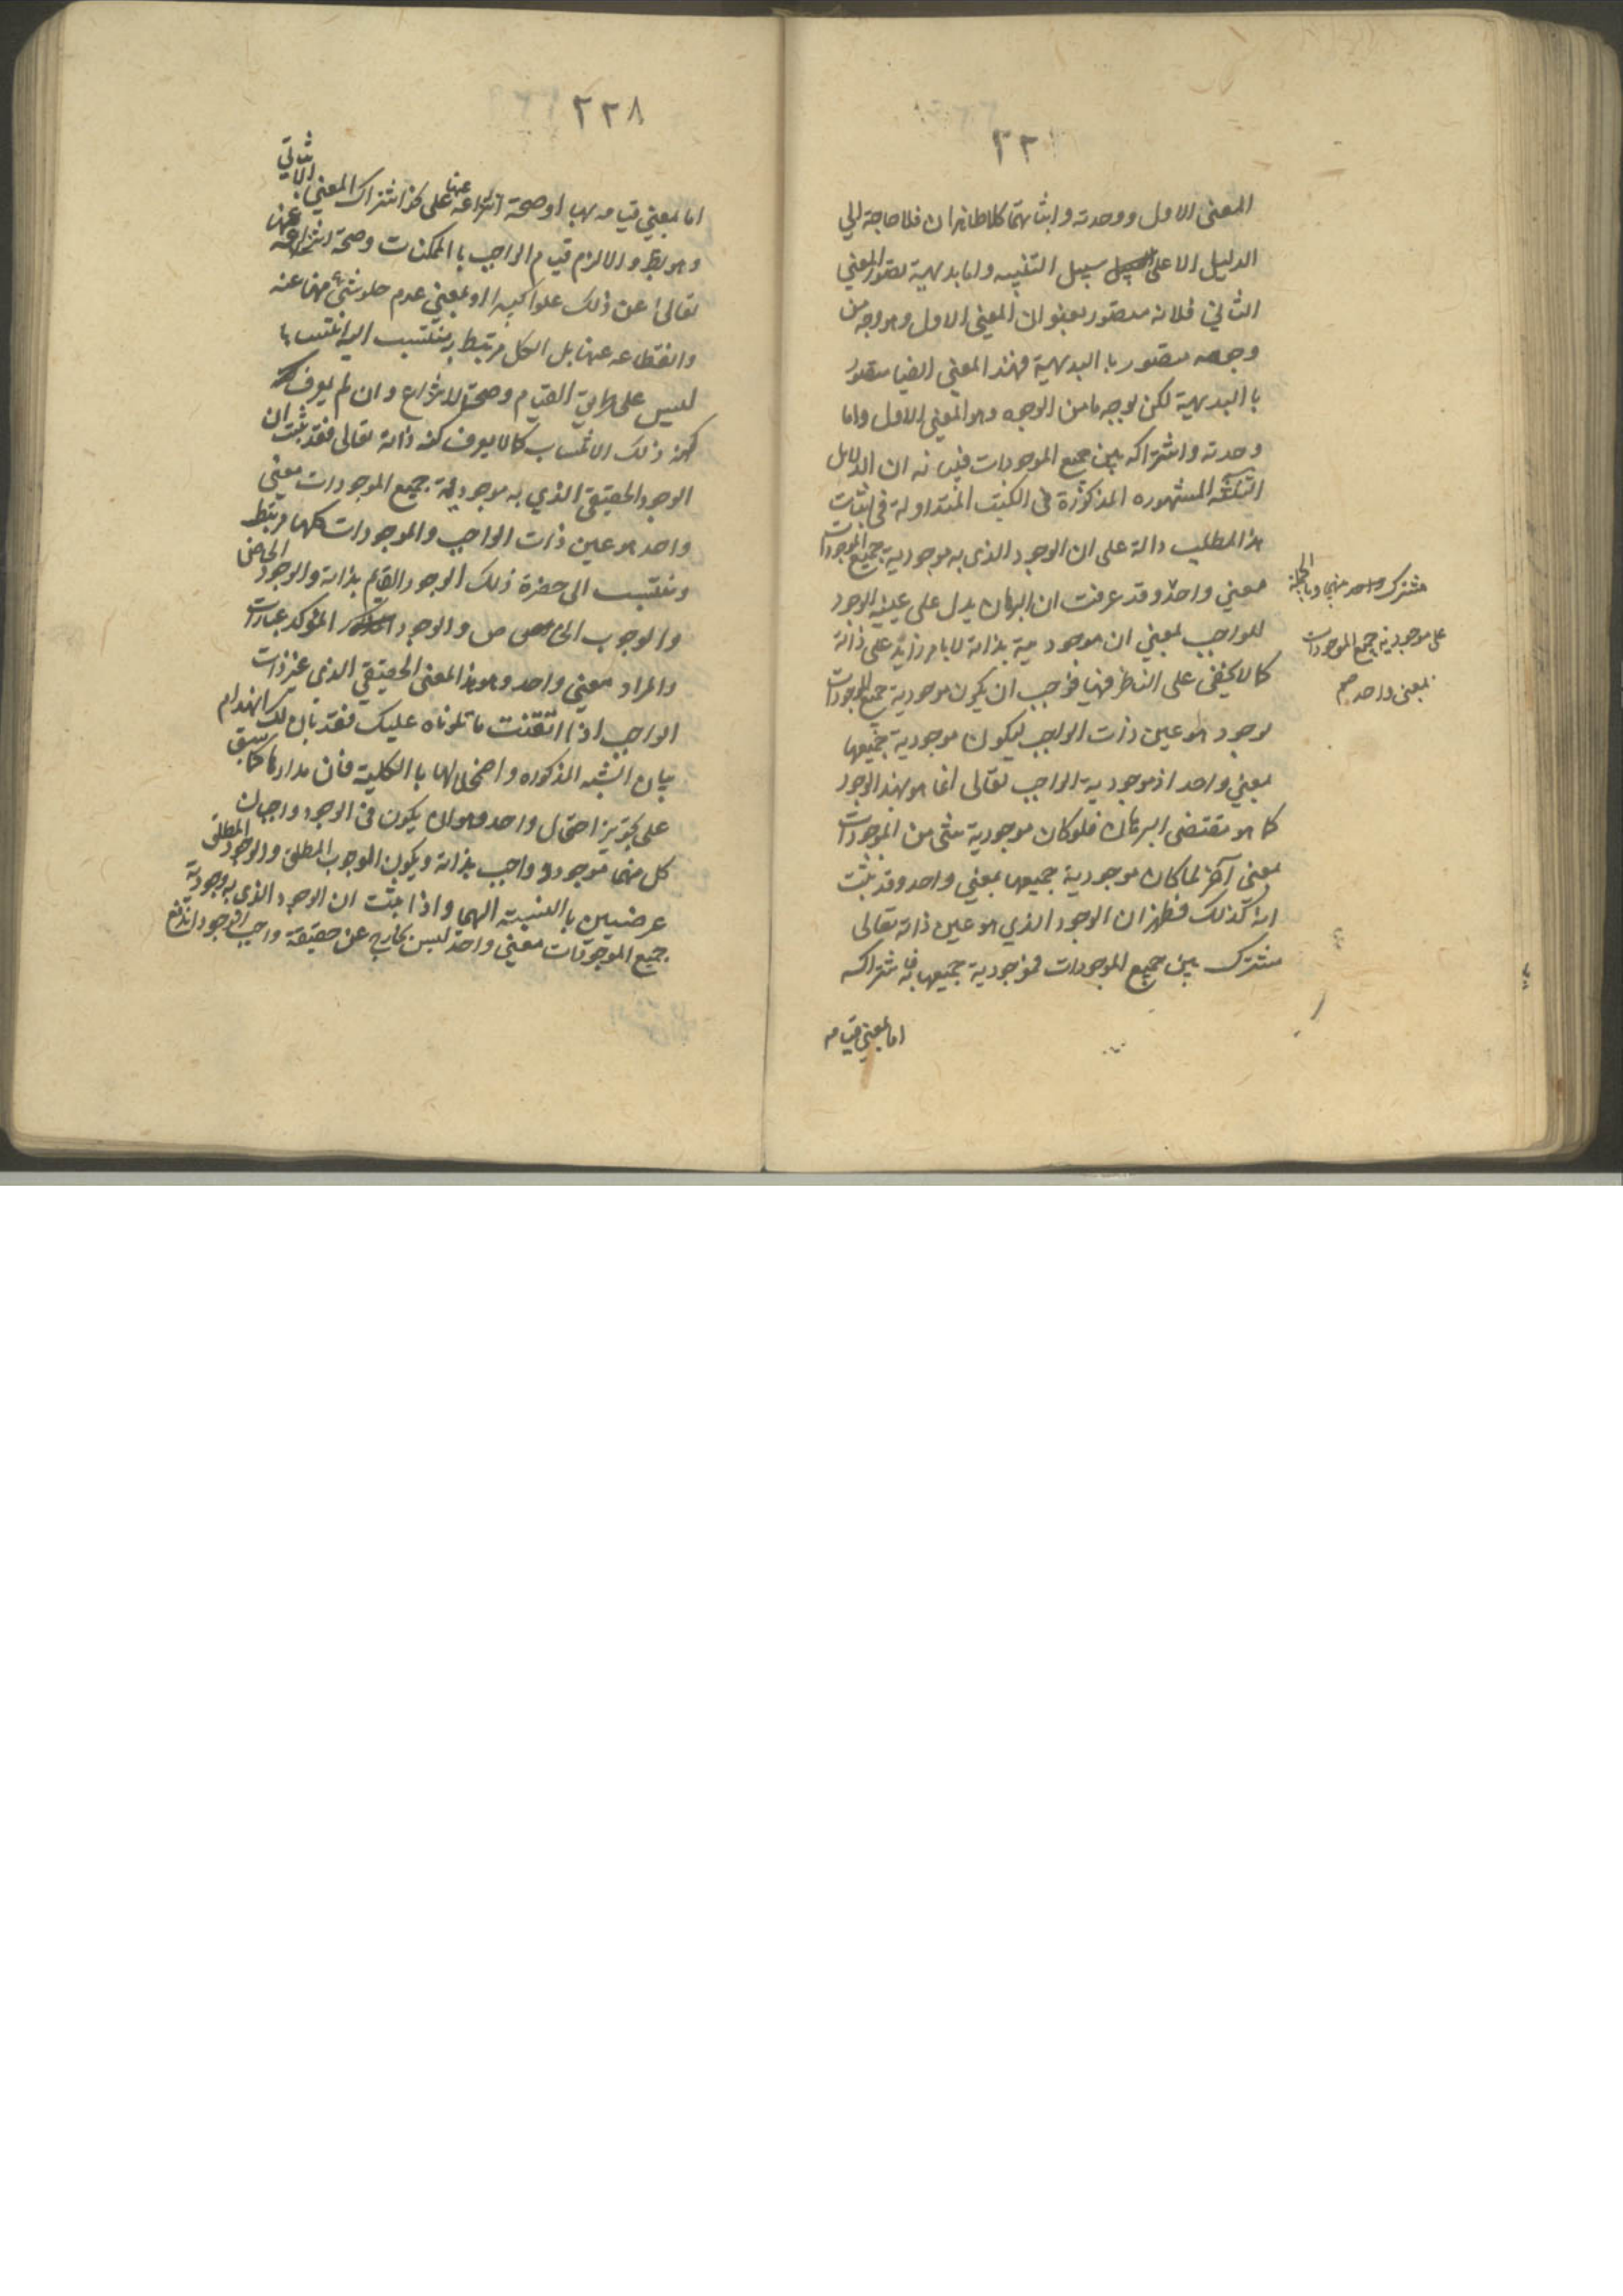 ٢٢
المعنى الاول ووحدته واثباتهما كلاهما ظاهران فلا حاجة الى
الدليل الا على سبيل التنبيه واما بديهية تصور المعنى
الثاني فلانه متصور بعنوان المعنى الاول وهو وجه من
وجوهه متصور بالبديهية فهذا المعنى ايضا متصور
بالبديهية لكن بوجه ما من الوجوه وهو المعنى الاول واما
وحدته واشتراكه بين جميع الموجودات فبيانه ان الدلايل
الثلثة المشهوره المذكورة في الكتب المتداولة في اثبات
هذا المطلب دالة على ان الوجود الذى به موجودية جميع الموجودات
معنى واحد وقد عرفت ان البرهان يدل على عينية الوجود
للواجب بمعنى ان موجودية بذاته لا بامر زايد على ذاته
كما لا يخفى على الناظر فيها فوجب ان يكون موجودية جميع الموجودات
بوجود هو عين ذات الواجب ليكون موجودية جميعها
بمعنى واحد اذ موجودية الواجب تعالى انما هو بهذا الوجود
كما هو مقتضى البرهان فلو كان موجودية شئ من الموجودات
بمعنى آخر لما كان موجودية جميعها بمعنى واحد وقد ثبت
انه كذلك فظهر ان الوجود الذي هو عين ذاته تعالى
مشترك بين جميع الموجودات فموجودية جميعها به فاشتراكه
اما بمعنى قيامه
مشترك واحد وبالجملة
على موجودية جميع الموجودات
بمعنى واحد صح
٢٢٨
اما بمعنى قيامه بها او صحة انتزاعه عنها على نحو اشتراك المعنى الاثباتي
وهو بط والا لزم قيام الواجب بالممكنات وصحة انتزاعه عنها
تعالى عن ذلك علوا كبيرا او بمعنى عدم خلو شئ منها عنه
وانقطاعه عنها بل الكل مرتبط به منتسب اليه انتسابا
ليس على طريق القيام وصحة الانتزاع وان لم يعرف
كنه ذلك الانتساب كما لا يعرف كنه ذاته تعالى فقد ثبت ان
الوجود الحقيقي الذي به موجودية جميع الموجودات معنى
واحد هو عين ذات الواجب والموجودات كلها مرتبط
ومنتسب الى حضرة ذلك الوجود القايم بذاته والوجود الخاص
والوجوب الخاص والوجود المتوكد عبارات
والمراد معنى واحد وهو هذا المعنى الحقيقي الذى عين ذات
الواجب اذا اتقنت ما تلوناه عليك فقد بان لك انهدام
بيان الشبه المذكوره واضمحلالها بالكلية فان مدارها كما سبق
على تجويز احتمال واحد وهو ان يكون في الوجود واجبان
كل منهما موجود واجب بذاته ويكون الوجوب المطلق والوجود المطلق
عرضيين بالنسبة اليهما واذا ثبت ان الوجود الذى به موجودية
جميع الموجودات معنى واحد ليس بخارج عن حقيقة واجب الوجود اندفع